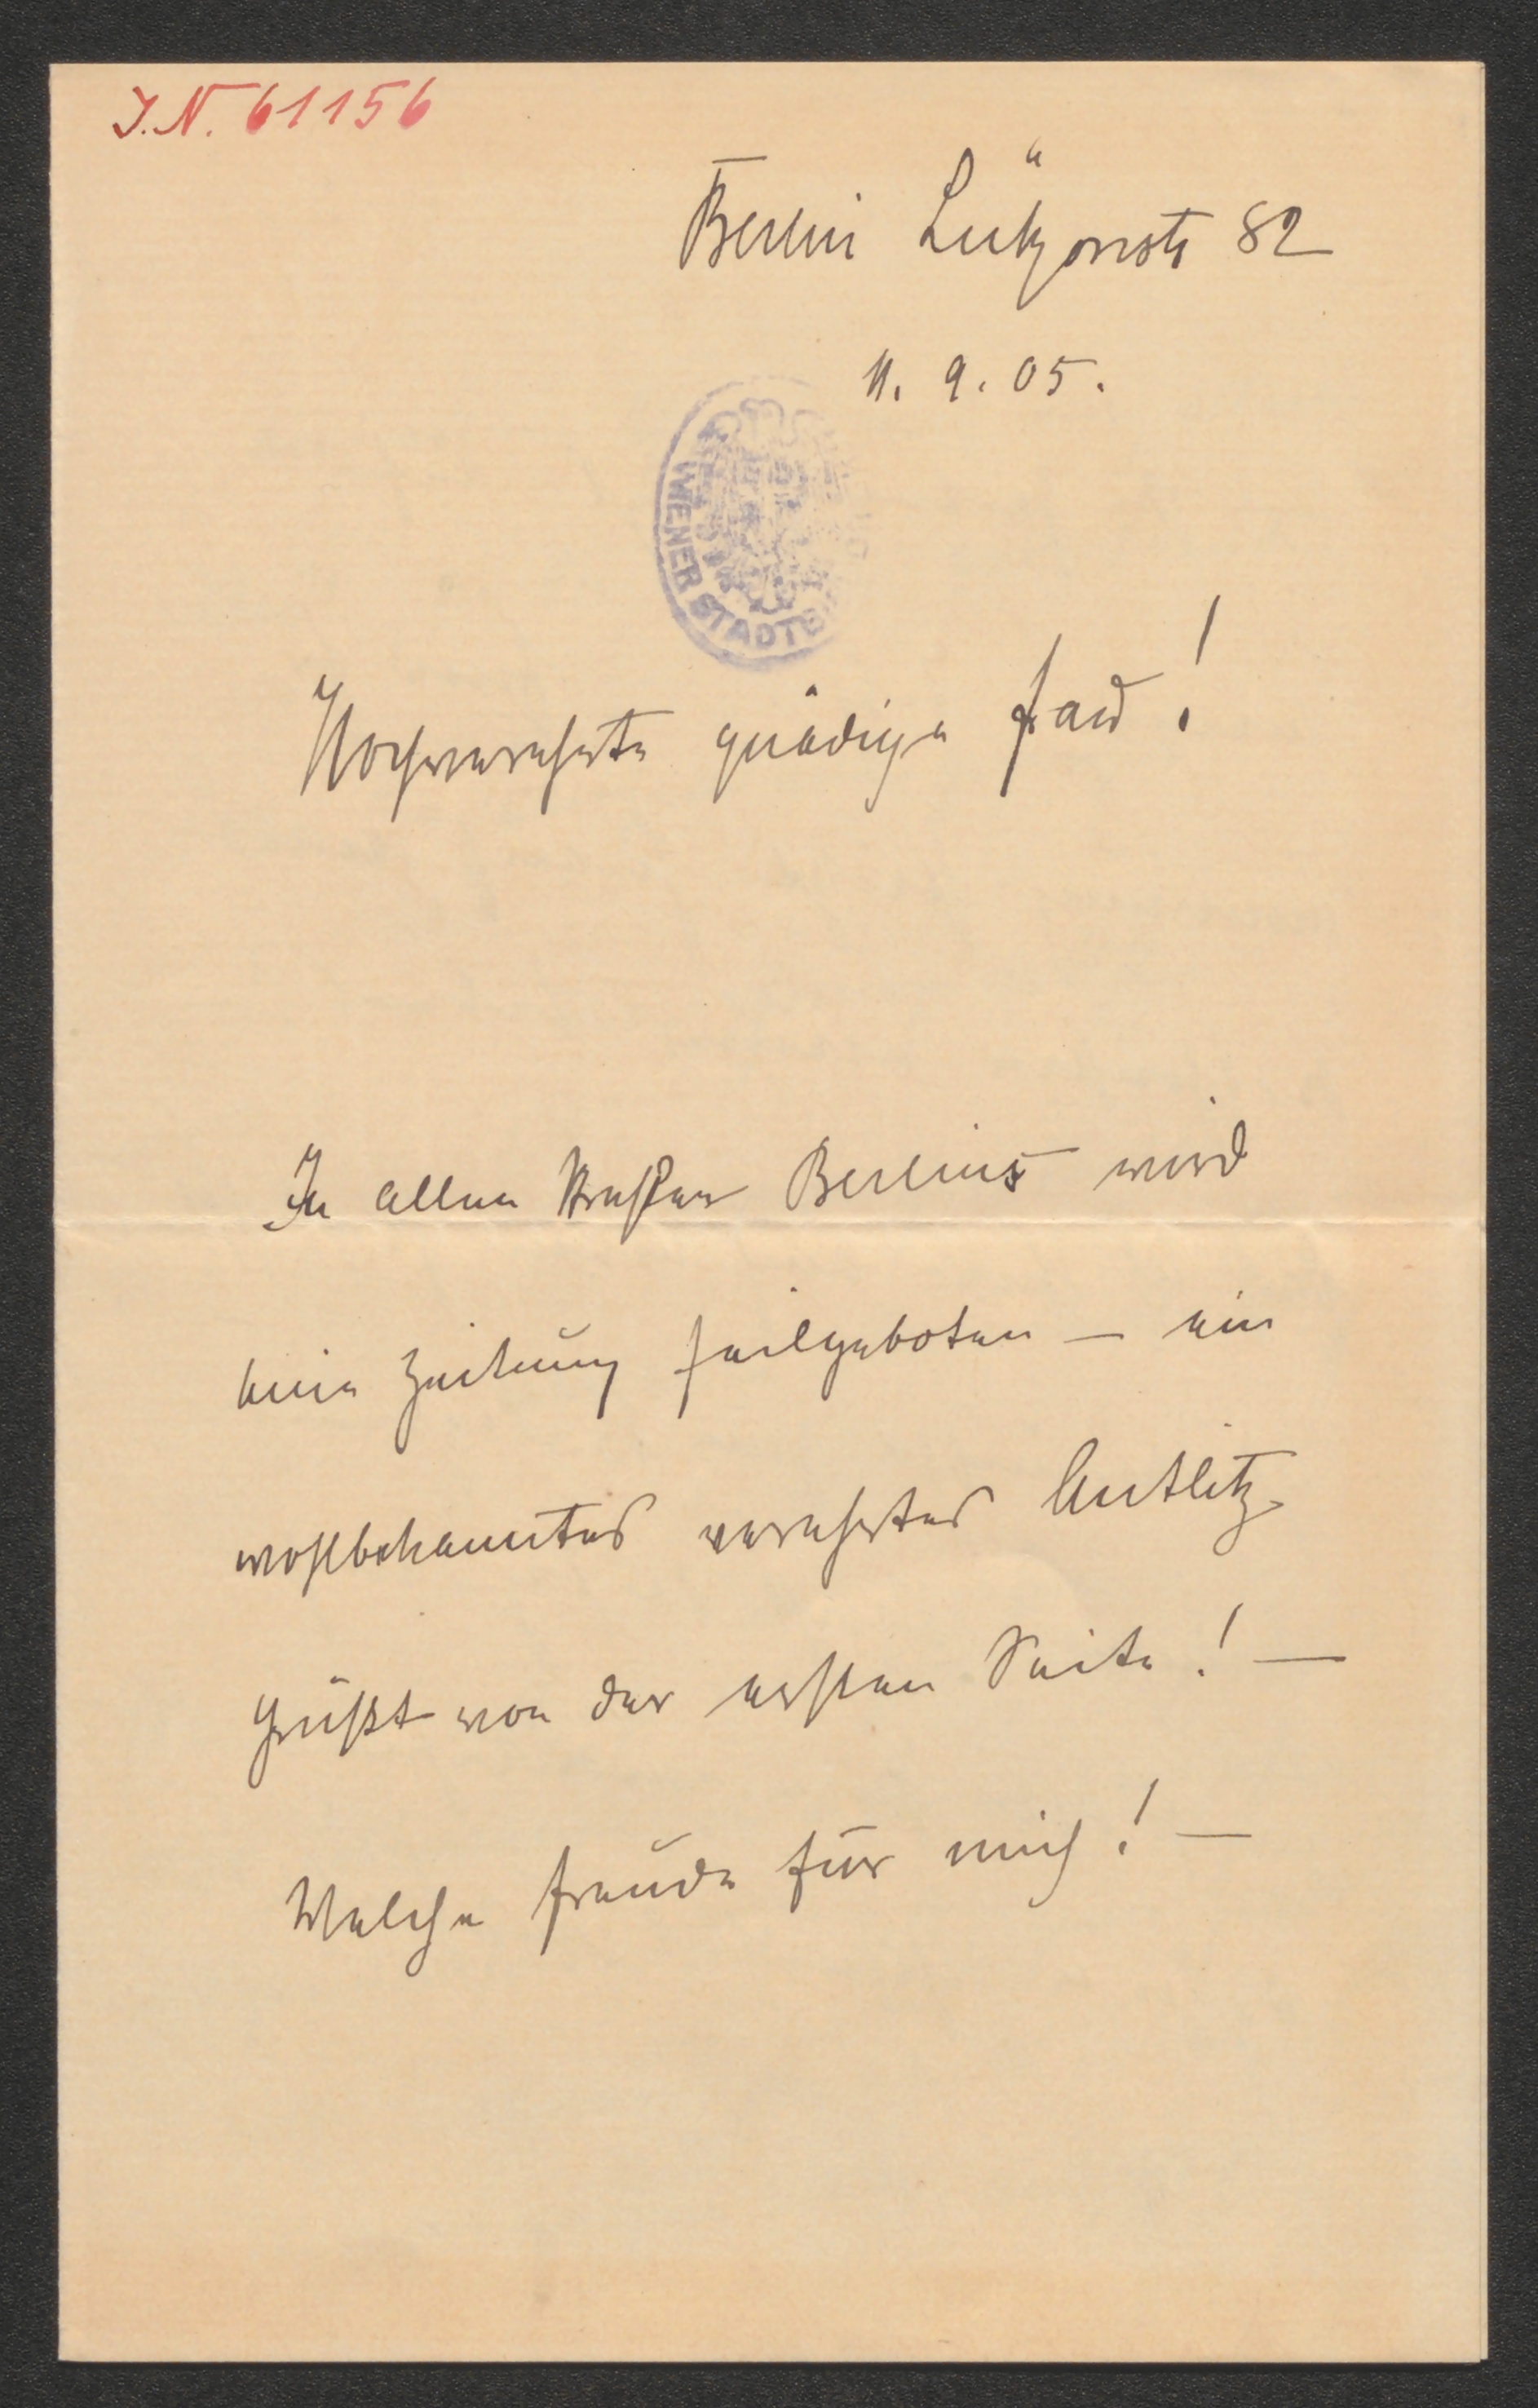 J.N. 61156
Berlin Lützowstr 82
11. 9. 05.
WIENER STADTB
Hochverehrte gnädige Frau!
In allen Straßen Berlins wird
eine Zeitung feilgeboten – ein
wohlbekanntes verehrtes Antlitz
grüßt von der ersten Seite! –
Welche Freude für mich! –